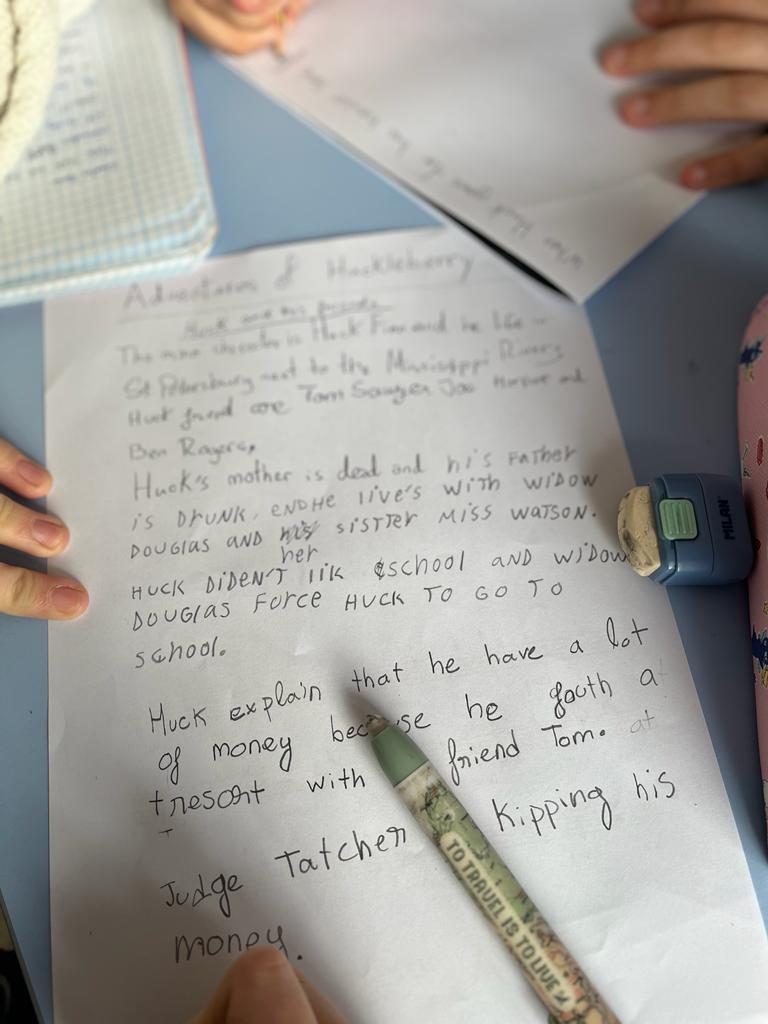 Adventures of Huckleberry
Huck and his friends
The main character is Huck Finn and he life in
St Petersburg next to the Mississippi Rivers
Huck friend are Tom Sawyer Joe Harper and
Ben Rogers.
Huck's mother is dead and his FATHER
is DrUNK, ENDHE liVE'S WiTH WiDOW
DOUGLAS AND SiSTTER MiSS WATSON.
her
HUCK DiDEN'T liK SCHOOl AND WiDOW
DOUGlAS FORCe HUCK TO GO TO
SCHOOl.
Huck explain that he have a lot
of money because he fouth a
tresort with friend Tom. at
Judge Tatcher Kipping his
money.
MILAN
TO TRAVEL IS TO LIVE